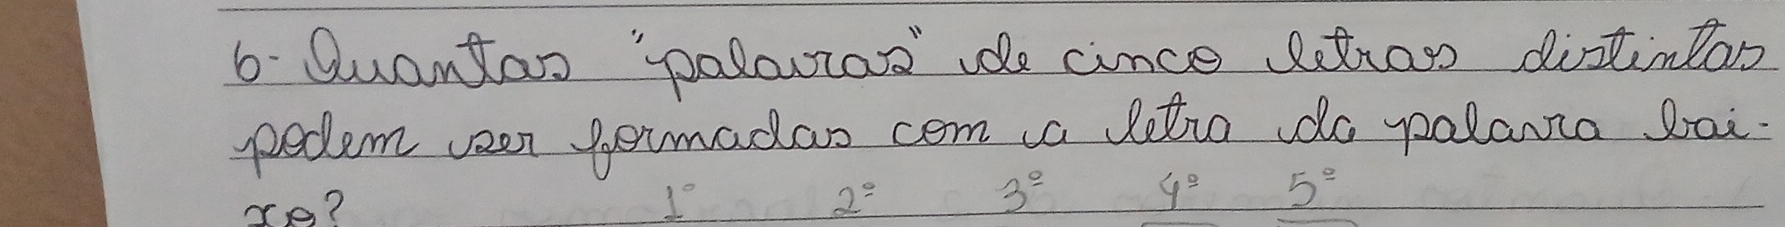 6- Quantas "palavras" de cinco letras distintas
podem ser formadas com a letra da palavra bai-
xo?
1º 2º 3º 4º 5º